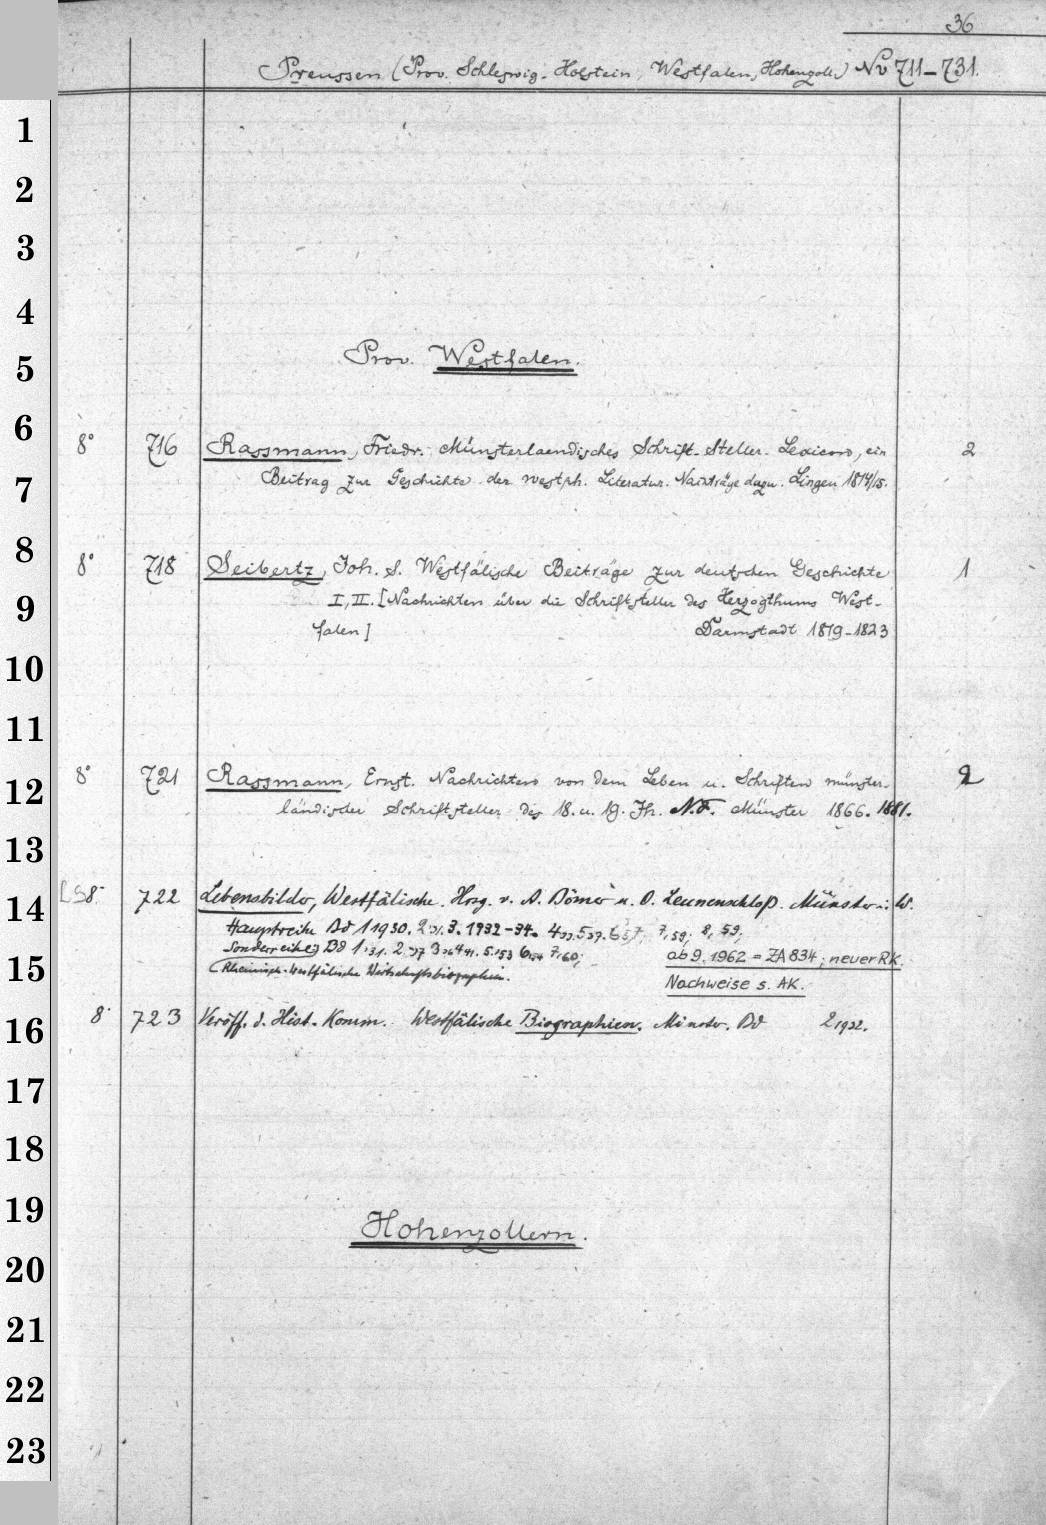 36
Preussen (Prov. Schleswig-Holstein, Westfalen, Hohenzoll.) No 711-731.
1
2
3
4
Prov. Westfalen.
5
6 8° 716 Rassmann, Friedr. Münsterlaendisches Schrift-Steller-Lexicon, ein 2
7 Beitrag zur Geschichte der westph. Literatur. Nachträge dazu. Lingen 1814/15.
8 8° 718 Seibertz, Joh. S. Westfälische Beiträge zur deutschen Geschichte 1
9 I, II. [Nachrichten über die Schriftsteller des Herzogthums West-
falen] Darmstadt 1819-1823
10
11
12 8° 721 Rassmann, Ernst. Nachrichten von dem Leben u. Schriften münster- 2
ländischer Schriftsteller des 18. u. 19. Jh. N.F. Münster 1866. 1881.
13
14 LS 8° 722 Lebensbilder, Westfälische. Hrsg. v. A. Bömer u. O. Leunenschloß. Münster i. W.
Hauptreihe Bd 1 1930. 2 31. 3. 1932-34. 4 33. 5 37. 6 57, 7, 59; 8, 59;
Sonderreihe Bd 1 31. 2 37 3 4 41. 5 53 6 54 7, 60; ab 9. 1962 = ZA 834; neuer RK.
15 (Rheinisch-Westfälische Wirtschaftsbiographien. Nachweise s. AK.
16 8° 723 Veröff. d. Hist. Komm. Westfälische Biographien. Münster. Bd 2 1922.
17
18
19 Hohenzollern.
20
21
22
23